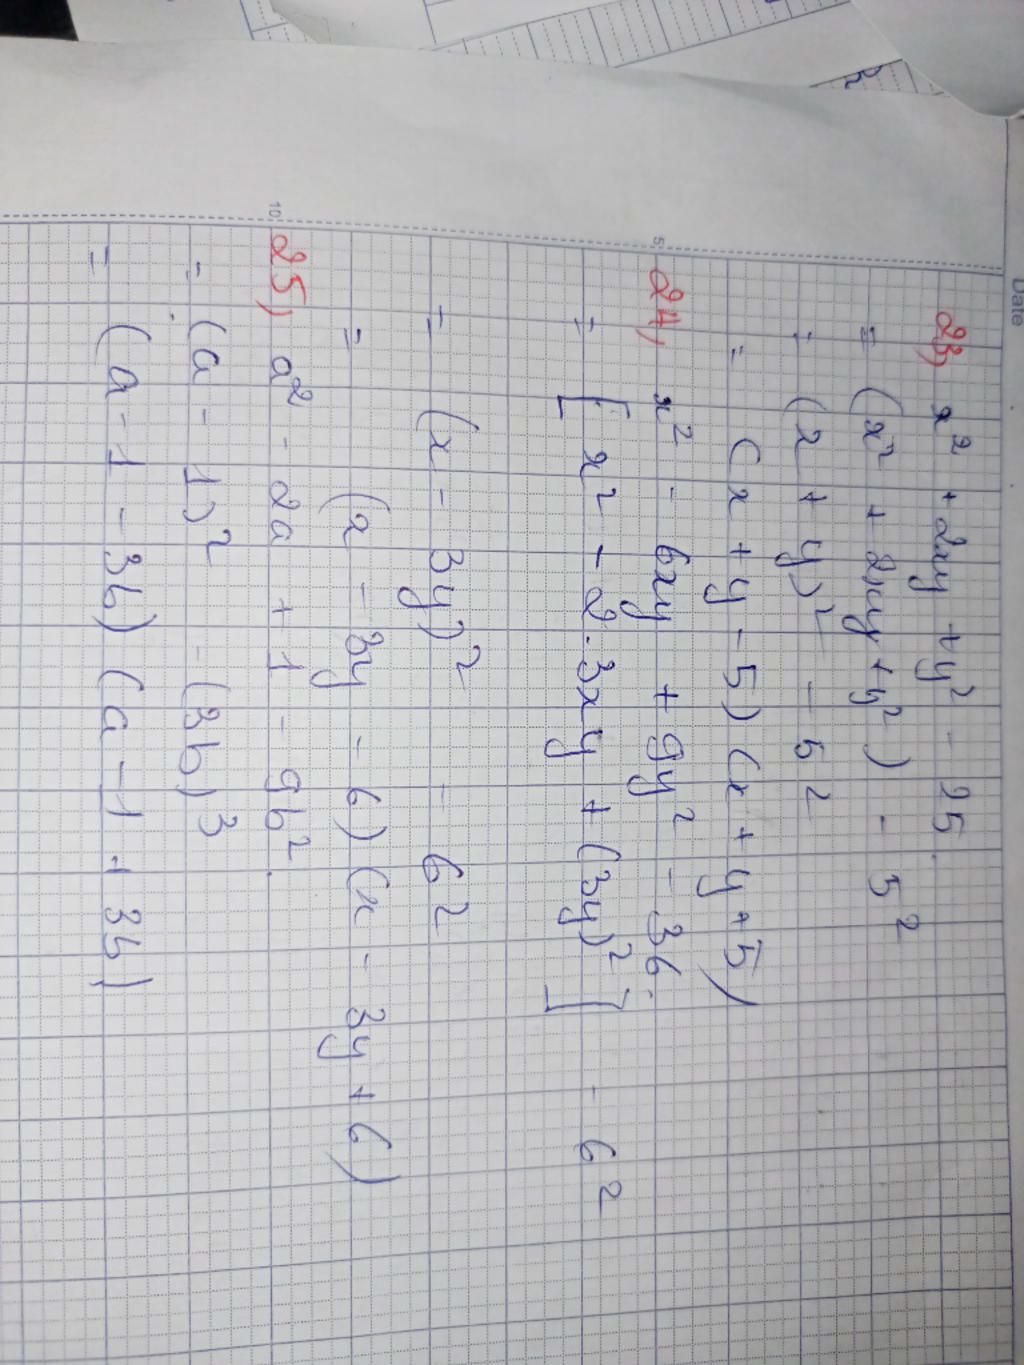 Date
23) x² + 2xy + y² - 25
= (x² + 2xy + y²) - 5²
= (x + y)² - 5²
= (x + y - 5) (x + y + 5)
5
24) x² - 6xy + 9y² - 36
= [x² - 2.3xy + (3y)²] - 6²
= (x - 3y)² - 6²
= (x - 3y - 6) (x - 3y + 6)
10
25) a² - 2a + 1 - 9b²
= (a - 1)² - (3b)3
= (a - 1 - 3b) (a - 1 + 3b)